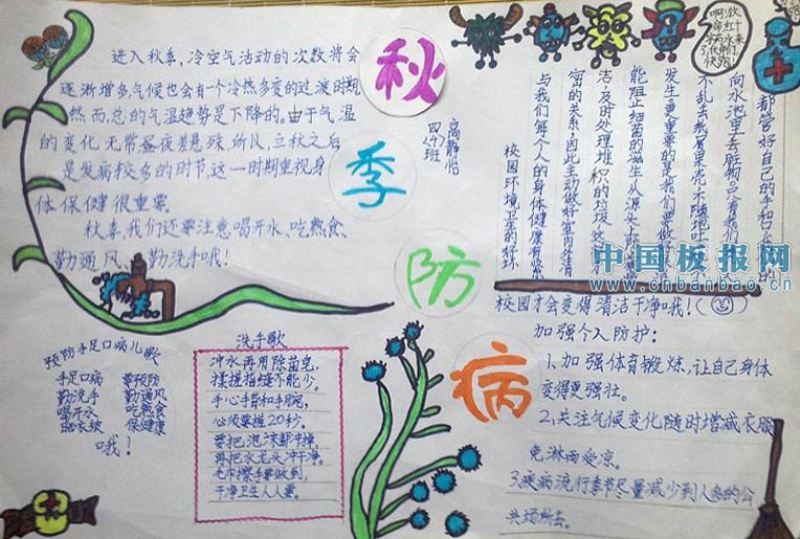 进入秋季，冷空气活动的次数将会
逐渐增多，气候也会有一个冷热多变的过渡时期，
然而，总的气温趋势是下降的。由于气温
的变化无常昼夜悬殊，所以，立秋之后
是发病较多的时节，这一时期重视身
体保健很重要。
秋季，我们还要注意喝开水、吃熟食、
勤通风、勤洗手哦！
秋
季
防
病
四(4)班
都管好自己的手和口
向水池里丢脏物只有我们
不乱丢纸屑果壳不随地
发生最重要的是我们要做
能阻止细菌的滋生从源头上
洁及时处理堆积的垃圾
密的关系因此主动做好室内外清
与我们每个人的身体健康有紧
校园环境卫生的好坏
校园才会变得清洁干净哦！
中国板报网
www.cnbanbao.cn
加强个人防护：
1、加强体育锻炼，让自己身体
变得更强壮。
2、关注气候变化随时增减衣服
免淋雨受凉。
3、疾病流行季节尽量减少到人多的公
共场所去。
预防手足口病儿歌
手足口病 要预防
勤洗手 勤通风
喝开水 吃熟食
晒衣被 保健康
哦！
洗手歌
冲水再用除菌皂，
揉搓指缝不能少。
手心手背和手腕，
必须要搓20秒。
要把泡沫都冲掉，
再把水龙头冲干净。
毛巾擦手要做到，
干净卫生人人要。